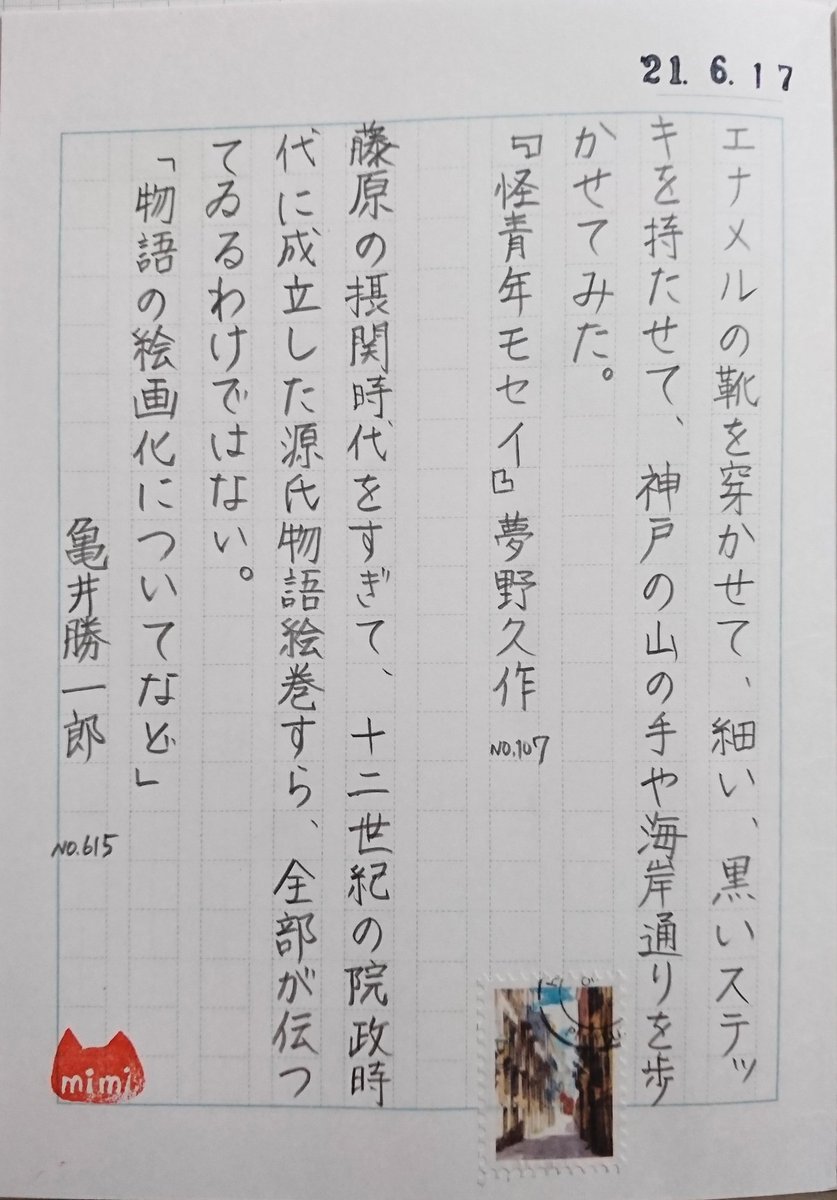 21.6.17
エナメルの靴を穿かせて、細い、黒いステッ
キを持たせて、神戸の山の手や海岸通りを歩
かせてみた。
『怪青年モセイ』夢野久作 NO.107
藤原の摂関時代をすぎて、十二世紀の院政時
代に成立した源氏物語絵巻すら、全部が伝つ
てゐるわけではない。
「物語の絵画化についてなど」
亀井勝一郎 NO.615
mimi